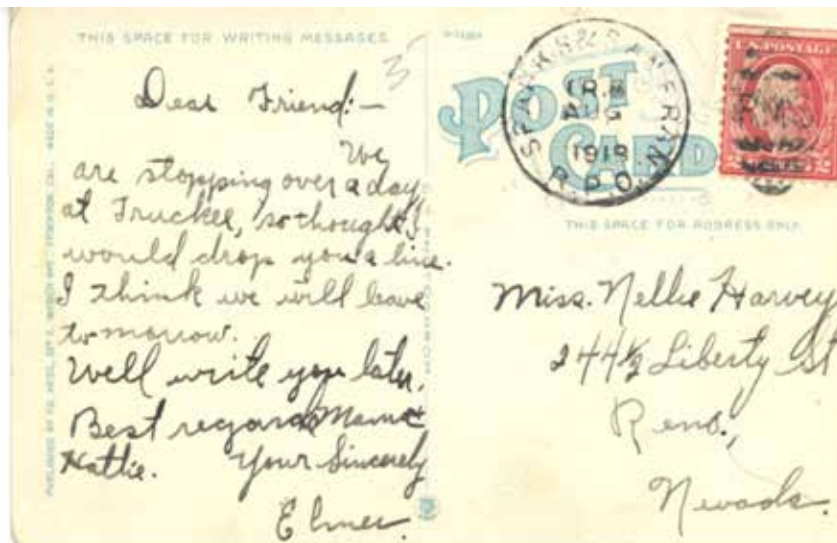 THIS SPACE FOR WRITING MESSAGES
Dear Friend:—
We
are stopping over a day
at Truckee, so thought I
would drop you a line.
I think we will leave
tomorrow.
Well write you later.
Best regards Mama &
Hattie. Your Sincerely
Elmer.
POST CARD
SPARKS & SAN FRAN
TR.
AUG
1919
R.P.O.
U.S. POSTAGE
2
THIS SPACE FOR ADDRESS ONLY.
Miss. Nellie Harvey
244½ Liberty St
Reno,
Nevada.